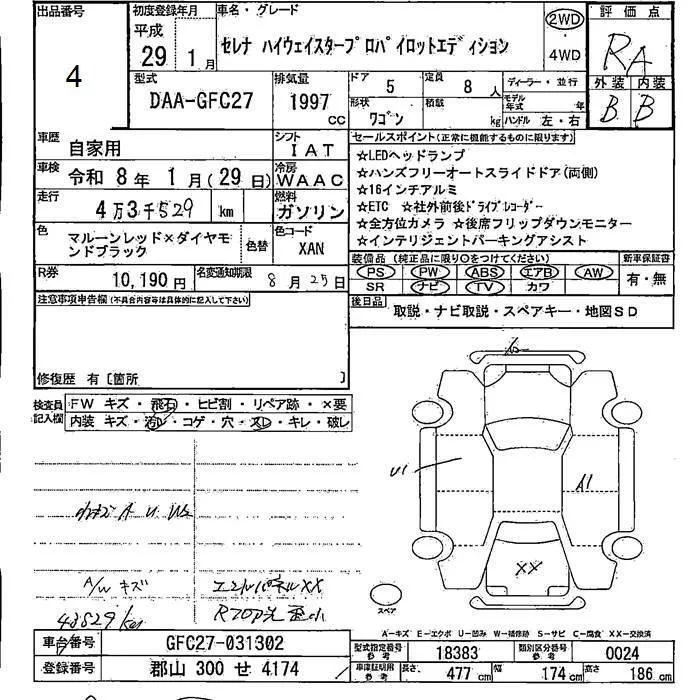 出品番号
4
初度登録年月
平成
29 1月
車名・グレード
セレナ ハイウェイスタープロパイロットエディション
2WD
・
4WD
評価点
RA
外装 内装
B B
型式
DAA-GFC27
排気量
1997
CC
ドア 5
定員 8人
ディーラー・並行
形状 ワゴン
積載 kg
モデル年式 年
ハンドル 左・右
車歴 自家用
シフト IAT
車検 令和 8年 1月(29日)
冷房 WAAC
走行 4万3千529 km
燃料 ガソリン
色 マルーンレッド×ダイヤモンドブラック
色替
色コード XAN
R券 10,190円
名変通知期限 8月25日
セールスポイント(正常に機能するものに限ります)
☆LEDヘッドランプ
☆ハンズフリーオートスライドドア(両側)
☆16インチアルミ
☆ETC ☆社外前後ドライブレコーダー
☆全方位カメラ ☆後席フリップダウンモニター
☆インテリジェントパーキングアシスト
装備品 (純正品に限り○をつけてください)
PS PW ABS エアB AW
SR ナビ TV カワ
新車保証書
有・無
後日品
取説・ナビ取説・スペアキー・地図SD
注意事項申告欄(不具合内容等は具体的に記入して下さい)
修復歴 有〔箇所 〕
検査員記入欄
FW キズ・飛石・ヒビ割・リペア跡・×要
内装 キズ・汚レ・コゲ・穴・スレ・キレ・破レ
A U W2
A/W キズ
エンドパネルXX
43529km
U1
A1
XX
スペア
A-キズ E-エクボ U-凹み W-補修跡 S-サビ C-腐食 XX-交換済
車台番号 GFC27-031302
登録番号 郡山 300 せ 4174
型式指定番号 参考 18383
類別区分番号 参考 0024
車庫証明用 参考 長さ、 477cm 幅 174cm 高さ 186cm